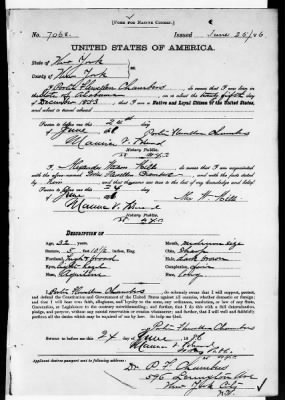 [FORM FOR NATIVE CITIZEN.]
No. 7062. Issued June 25/86
UNITED STATES OF AMERICA.
State of New York
County of New York
I, Porter Flewellen Chambers, do swear that I was born in
State of Alabama on or about the twenty fifth day of
December 1853, that I am a Native and Loyal Citizen of the United States,
and about to travel abroad
Sworn to before me this 24th
day of June
Porter Flewellen Chambers
Notary Public.
N.Y. Co
I, do swear that I am acquainted
with the above-named Porter Flewellen Chambers, and with the facts stated
by him and that the same are true to the best of my knowledge and belief.
Sworn to before me this 24
day of June
Notary Public.
N.Y. Co
DESCRIPTION OF
Age, 32 years, Mouth, medium size
Stature, 5 feet 10 1/2 inches, Eng. Chin, Sharp
Forehead, high & broad Hair, dark brown
Eyes, Complexion,
Nose, Aquiline Face,
I, Porter Flewellen Chambers do solemnly swear that I will support,
protect, and defend the Constitution and Government of the United States against all enemies, whether domestic or foreign;
and that I will bear true faith, allegiance, and loyalty to the same, any ordinance, resolution, or law of any State,
Convention, or Legislature to the contrary notwithstanding; and further, that I do this with a full determination,
pledge, and purpose, without any mental reservation or evasion whatsoever; and further, that I will well and faithfully
perform all the duties which may be required of me by law. So help me God.
Porter Flewellen Chambers
Sworn to before me this 24 day of June 1886
Notary Public.
N.Y. Co
Applicant desires passport sent to following address:
Dr. P. F. Chambers
Lexington Ave
New York City